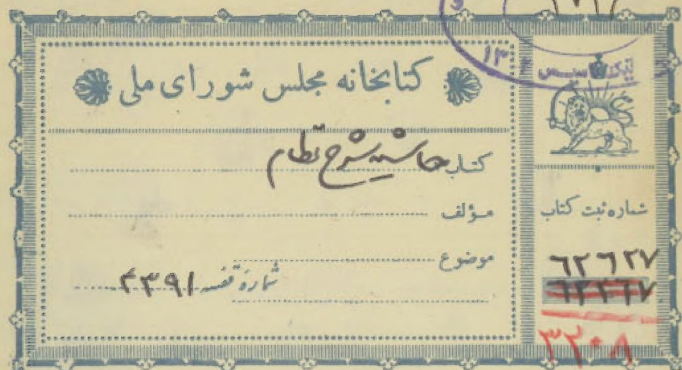 کتابخانه مجلس شورای ملی
کتاب حاشیه شرح نظام
مؤلف
موضوع
شماره قفسه ۴۳۹۱
شماره ثبت کتاب
۶۲۶۲۷
۳۲۰۸